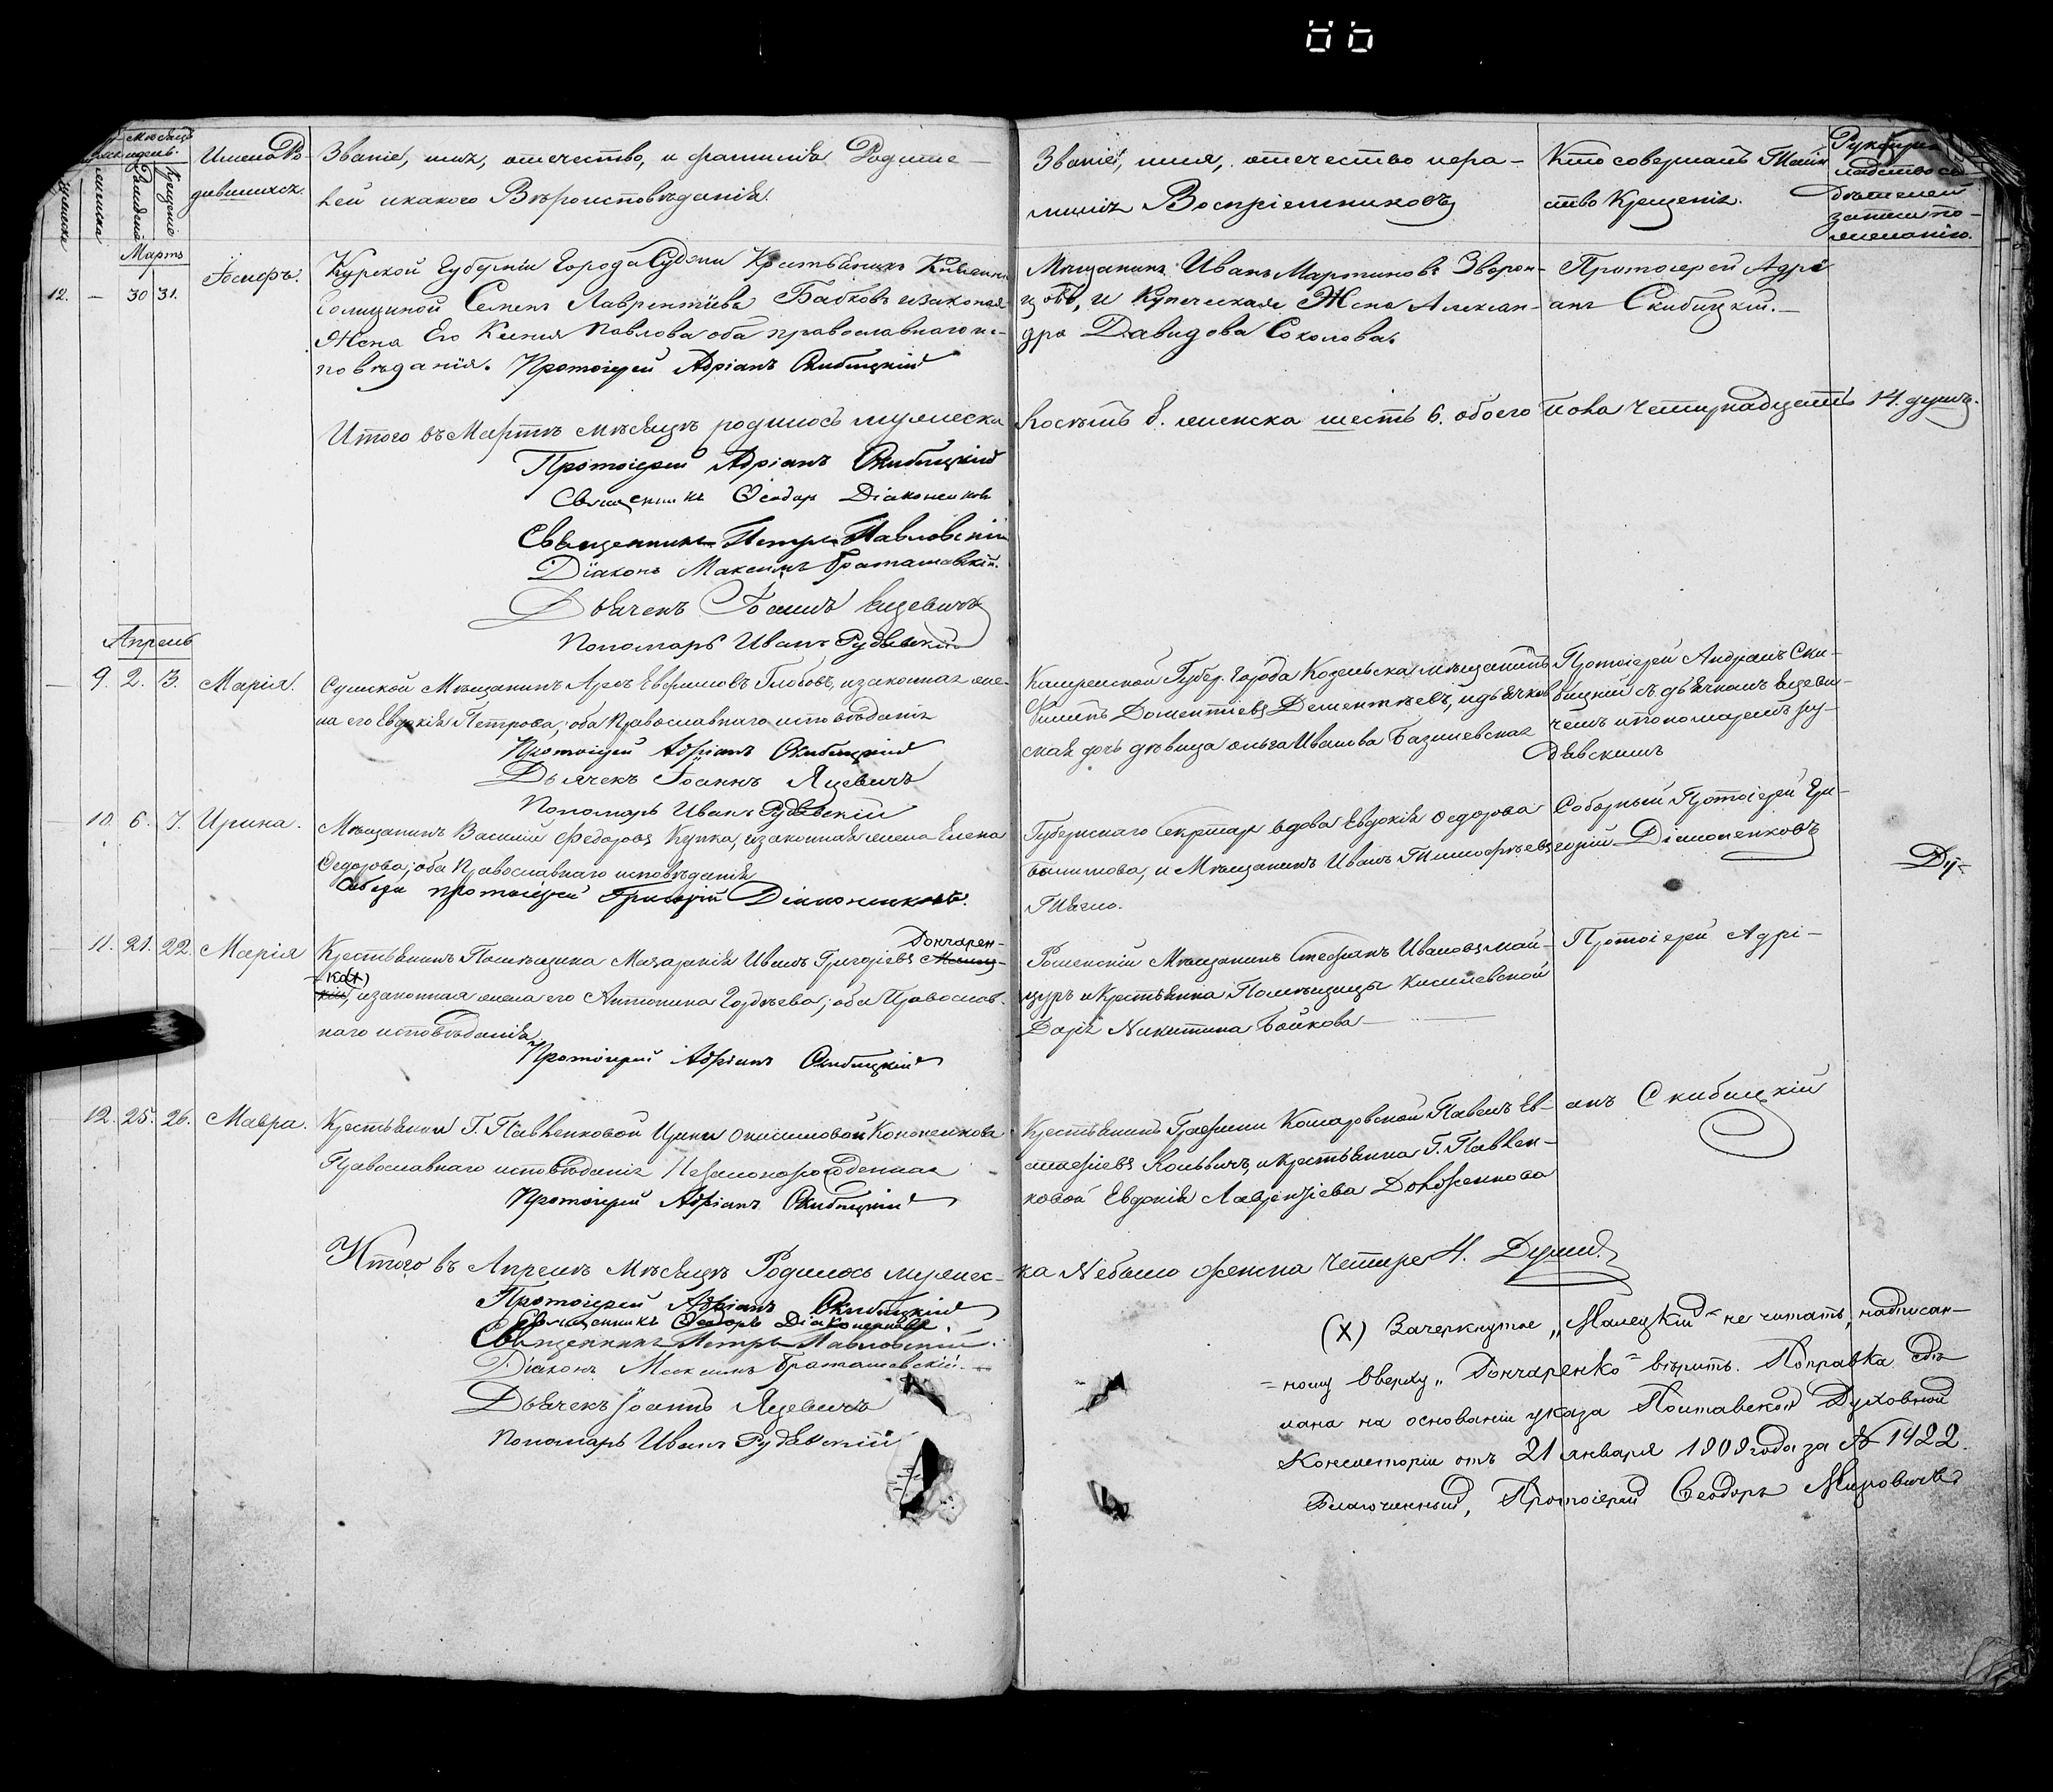 Мѣсяцъ
и день.
Имена Ро-
дившихся.
Рожденія
Крещенія
Званіе, имя, отечество, и фамилія Родите-
лей и какого Вѣроисповѣданія.
Званіе, имя, отечество и фа-
милія Воспріемниковъ
Кто совершалъ Таин
ство Крещенія.
Рукопри-
кладство сви
дѣтелей
записи по
желанію.
Мартъ
12. — 30 31. Іосифъ.
Курской Губерніи Города Суджи Крестьянинъ
Семенъ Лаврентіевъ Бабковъ и законая
Жена Его Ксенія Павлова оба православнаго ис-
повѣданія. Протоіерей Адріанъ Скибицкій
Мѣщанинъ Иванъ Мартиновъ Зворон-
цовъ, и Купеческая Жена Алексан-
дра Давидова Соколова.
Протоіерей Адрі
анъ Скибицкій.—
Итого въ Мартѣ мѣсяцѣ родилось мужеска
восѣмъ 8. женска шесть 6. обоего пола четырнадцать 14. душъ.
Протоіерей Адріанъ Скибицкій
Священникъ Ѳеодоръ Діаконенковъ
Священникъ Петръ Павловскій
Діаконъ Максимъ Браташевскій.
Дьячекъ Іоаннъ Яцевичъ
Пономарь Иванъ Рудѣвскій
Апрель
— 9. 2. 3. Марія.
Сумской Мѣщанинъ Евфимовъ Глобовъ, и законная же-
на его Евдокія Петрова; оба Православнаго исповѣданія
Протоіерей Адріанъ Скибицкій
Дьячекъ Іоаннъ Яцевичъ
Пономарь Иванъ Рудѣвскій
Губер. Города Козельска мѣщанинъ
Дементіевъ Дементѣевъ, и дьячков
ская дочь дѣвица Ольга Иванова Базилевская
Протоіерей Андріанъ Ски-
бицкій съ дьячкомъ Яцеви-
чемъ и пономаремъ Ру-
дѣвскимъ
— 10. 6. 7. Ирина.
Мѣщанинъ Василій Федоровъ Купка, и законная жена Елена
Ѳедорова; оба Православнаго исповѣданія
протоіерей Григорій Діаконенковъ.
Губернскаго Секретар вдова Евдокія Ѳедорова
и Мѣщанинъ Иванъ Тимофѣевъ
Соборный Протоіерей Гри-
горій Діаконенковъ
Ду-
— 11. 21. 22. Марія
Гончарен-
Крестьянинъ Помѣщика Иванъ Григоріевъ
ко(х)
и законная жена его Антонина Гордѣева; оба Православ-
наго исповѣданія
Протоіерей Адріанъ Скибицкій
Роменскій Мѣщанинъ Стефанъ Ивановъ Май-
щуръ и Крестьянка Помѣщицы Киселевской
Дарія Никитина Бойкова —
Протоіерей Адрі-
— 12. 25. 26. Мавра.
Крестьянки Г. Павленковой Ирины Онисимовой Кононенкова
Православнаго исповѣданія Незаконорожденная
Протоіерей Адріанъ Скибицкій
Крестьянинъ Графини Комаровской Павелъ Ев-
стафіевъ и крестьянка Г. Павлен-
ковой Евдокія Лаврентіева Доложенкова
анъ Скибицкій
Итого въ Апрелѣ Мѣсяцѣ Родилось мужес-
ка Небыло женска Четыре 4. Души.
Протоіерей Адріанъ Скибицкій
Священникъ Ѳеодоръ Діаконенковъ.
Священникъ Петръ Павловскій.
Діаконъ Максимъ Браташевскій.
Дьячекъ Іоаннъ Яцевичъ
Пономарь Иванъ Рудѣвскій
(х) Зачеркнутое „Малецкій" не читать, надписан-
ному вверху „Гончаренко" вѣрить. Поправка сдѣ
лана на основаніи указа Полтавской Духовной
Консисторіи отъ 21 января 1909 года за № 1422.
Благочинный, Протоіерей Ѳеодоръ Мировичъ